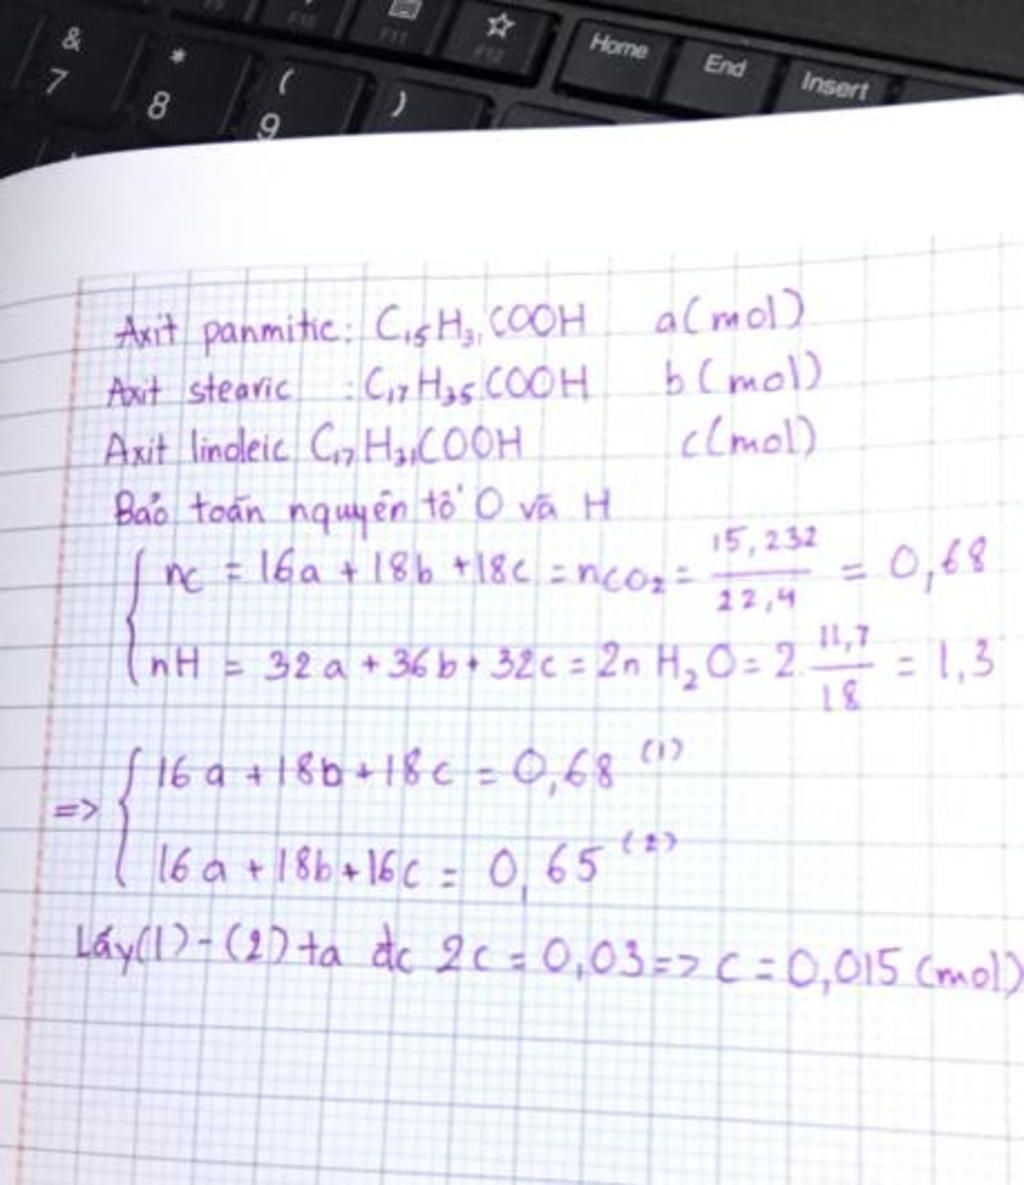 & * ( )
7 8 9
F10 F11 F12 Home End Insert
Axit panmitic: C₁₅H₃₁COOH a(mol)
Axit stearic : C₁₇H₃₅COOH b(mol)
Axit linoleic C₁₇H₃₁COOH c(mol)
Bảo toàn nguyên tố O và H
nc = 16a + 18b + 18c = nCO₂ = 15,232/22,4 = 0,68
nH = 32a + 36b + 32c = 2n H₂O = 2. 11,7/18 = 1,3
16a + 18b + 18c = 0,68 (1)
=>
16a + 18b + 16c = 0,65 (2)
Lấy (1) - (2) ta đc 2c = 0,03 => c = 0,015 (mol)